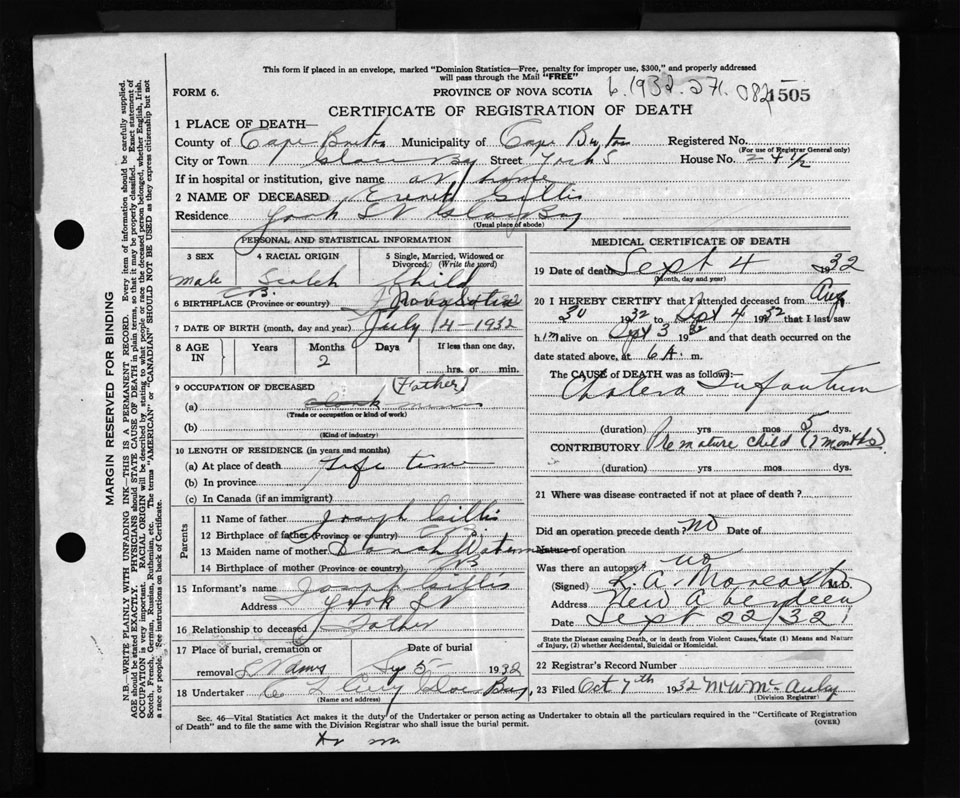 This form if placed in an envelope, marked "Dominion Statistics—Free, penalty for improper use, $300," and properly addressed
will pass through the Mail "FREE"
FORM 6. PROVINCE OF NOVA SCOTIA 6.1932.271.082 1505
CERTIFICATE OF REGISTRATION OF DEATH
1 PLACE OF DEATH—
County of Cape Breton Municipality of Cape Breton Registered No.
(For use of Registrar General only)
City or Town Glace Bay Street York S House No. 24½
If in hospital or institution, give name at home
2 NAME OF DECEASED Gillis
Residence York St Glace Bay
(Usual place of abode)
PERSONAL AND STATISTICAL INFORMATION
3 SEX 4 RACIAL ORIGIN 5 Single, Married, Widowed or
Divorced. (Write the word)
male Scotch Child
6 BIRTHPLACE (Province or country) Nova Scotia
7 DATE OF BIRTH (month, day and year) July 14-1932
8 AGE IN Years Months Days If less than one day,
2 hrs. or min.
9 OCCUPATION OF DECEASED (Father)
(a) miner
(Trade or occupation or kind of work)
(b)
(Kind of industry)
10 LENGTH OF RESIDENCE (in years and months)
(a) At place of death Life time
(b) In province
(c) In Canada (if an immigrant)
Parents
11 Name of father Joseph Gillis
12 Birthplace of father (Province or country) CB
13 Maiden name of mother
14 Birthplace of mother (Province or country) CB
15 Informant's name Joseph Gillis
Address York St
16 Relationship to deceased Father
17 Place of burial, cremation or Date of burial
removal 5 1932
18 Undertaker Glace Bay
(Name and address)
MEDICAL CERTIFICATE OF DEATH
19 Date of death Sept 4 1932
(Month, day and year)
20 I HEREBY CERTIFY that I attended deceased from Aug
30 1932 to Sept 4 1932 that I last saw
him alive on Sept 3 1932 and that death occurred on
date stated above, at 6 A. m.
The CAUSE of DEATH was as follows:—
Cholera Infantum
(duration) yrs mos 5 dys.
CONTRIBUTORY Premature child (7 months)
(duration) yrs. mos. dys.
21 Where was disease contracted if not at place of death?
Did an operation precede death? NO Date of
Nature of operation
Was there an autopsy? no
(Signed) M.D.
Address New Aberdeen
Date Sept 22/32
State the Disease causing Death, or in death from Violent Causes, state (1) Means and Nature
of Injury, (2) whether Accidental, Suicidal or Homicidal.
22 Registrar's Record Number
23 Filed Oct 7th 1932
(Division Registrar)
Sec. 46—Vital Statistics Act makes it the duty of the Undertaker or person acting as Undertaker to obtain all the particulars required in the "Certificate of Registration
of Death" and to file the same with the Division Registrar who shall issue the burial permit. (OVER)
MARGIN RESERVED FOR BINDING
N.B.—WRITE PLAINLY WITH UNFADING INK—THIS IS A PERMANENT RECORD. Every item of information should be carefully supplied.
AGE should be stated EXACTLY. PHYSICIANS should STATE CAUSE OF DEATH in plain terms, so that it may be properly classified. Exact statement of
OCCUPATION is very important. RACIAL ORIGIN will be described by stating to what people or race the deceased person belonged, whether English, Irish,
Scotch, French, German, Russian, Ruthenian, etc. The terms "AMERICAN" or "CANADIAN" SHOULD NOT BE USED as they express citizenship but not
a race or people. See instructions on back of Certificate.